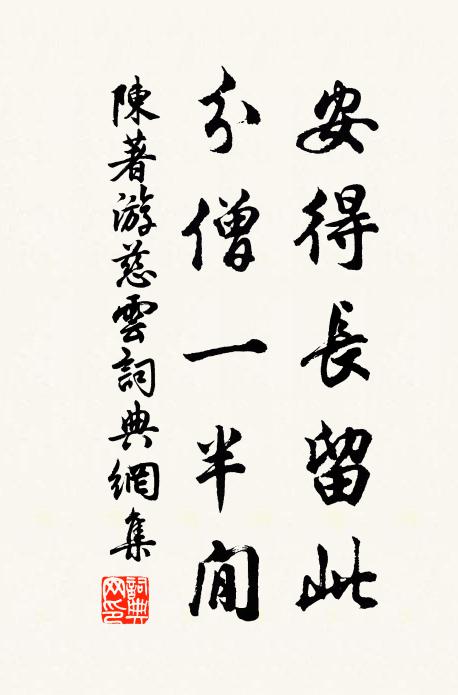 安得長留此
分僧一半閒
陳著游慈雲詞典網集
詞典網印